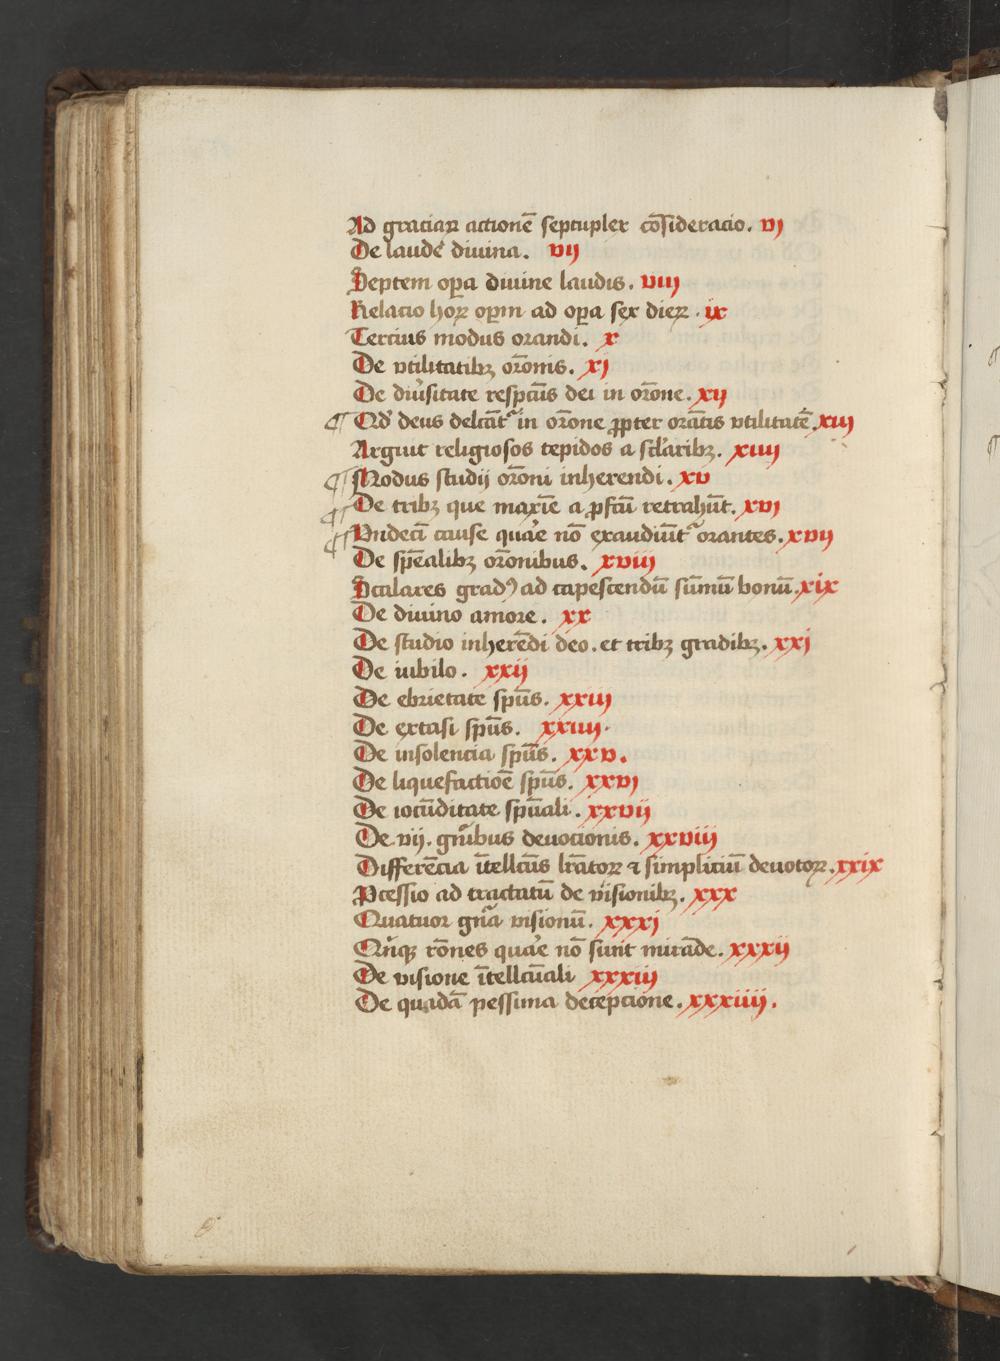 Ad graciaꝝ actionē septuplex cōsideracio. vj
De laude diuina. vij
Septem oꝑa diuine laudis. viij
Relacio hoꝝ oꝑm ad oꝑa sex dieꝝ. ix
Tercius modus orandi. x
De vtilitatibꝫ orōnis. xj
De diu͛sitate respc̄us dei in orōne. xij
¶ Qd͛ deus delcāt͛ in orōne ꝓpter orātis vtilitatē. xiij
Arguit religiosos tepidos a sclaribꝫ. xiiij
¶ Modus studij orōni inherendi. xv
¶ De tribꝫ que maxīe a ꝓfcū retrahūt. xvj
¶ Vndecī cause quaꝛe nō exaudiūt͛ orantes. xvij
De spēalibꝫ orōnibus. xviij
Scalares gradꝰ ad capescendū sūmū bonū. xix
De diuino amore. xx
De studio inherēdi deo. et tribꝫ gradibꝫ. xxj
De iubilo. xxij
De ebrietate spūs. xxiij
De extasi spūs. xxiiij.
De insolencia spūs. xxv.
De liquefactiōe spūs. xxvj
De iocūditate spūali. xxvij
De vij. gn͛ibus deuocionis. xxviij
Differēcia ītellcūs lrātoꝝ ⁊ simpliciū deuotoꝝ. xxix
Ꝓcessio ad tractatū de visionibꝫ. xxx
Quatuor gn͛a visionū. xxxj
Qn͛qꝫ rōnes quaꝛe nō sunt mirāde. xxxij
De visione ītellcūali xxxiij
De quadā pessima decepcione. xxxiiij.